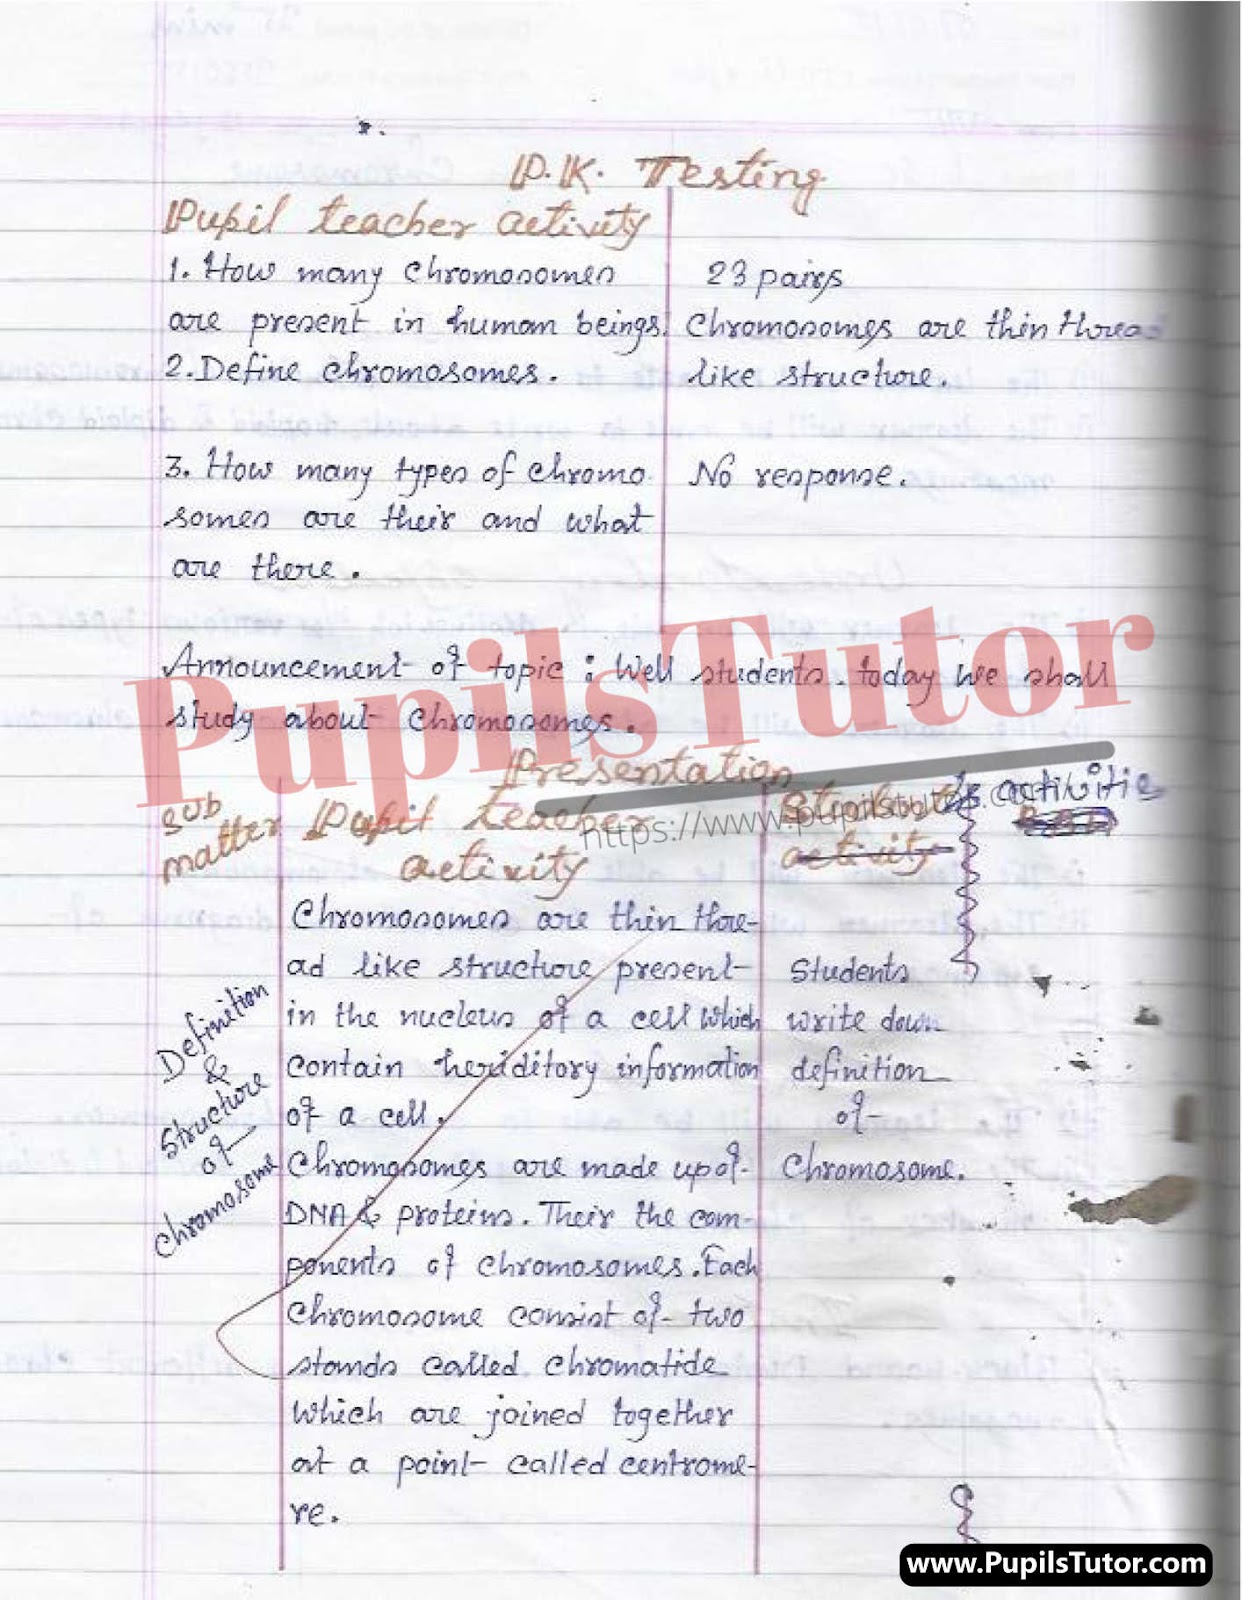 P.K. Testing
Pupil teacher activity
1. How many chromosomes
are present in human beings.
2. Define chromosomes.
3. How many types of chromo
somes are their and what
are there.
23 pairs
Chromosomes are thin thread
like structure.
No response.
Announcement of topic : Well students. today we shall
study about chromosomes.
PupilsTutor
Presentation
Sub
matter
Pupil teacher
activity
activity
activitie
https://www.pupilstutor.co
Definition
&
Structure
of
Chromosome
Chromosomes are thin thre-
ad like structure present
in the nucleus of a cell which
contain heriditory information
of a cell.
Chromosomes are made up of
DNA & proteins. Their the com-
ponents of chromosomes. Each
chromosome consist of two
stands called chromatide
which are joined together
at a point called centrome-
re.
Students
write down
definition
of
Chromosome.
www.PupilsTutor.com